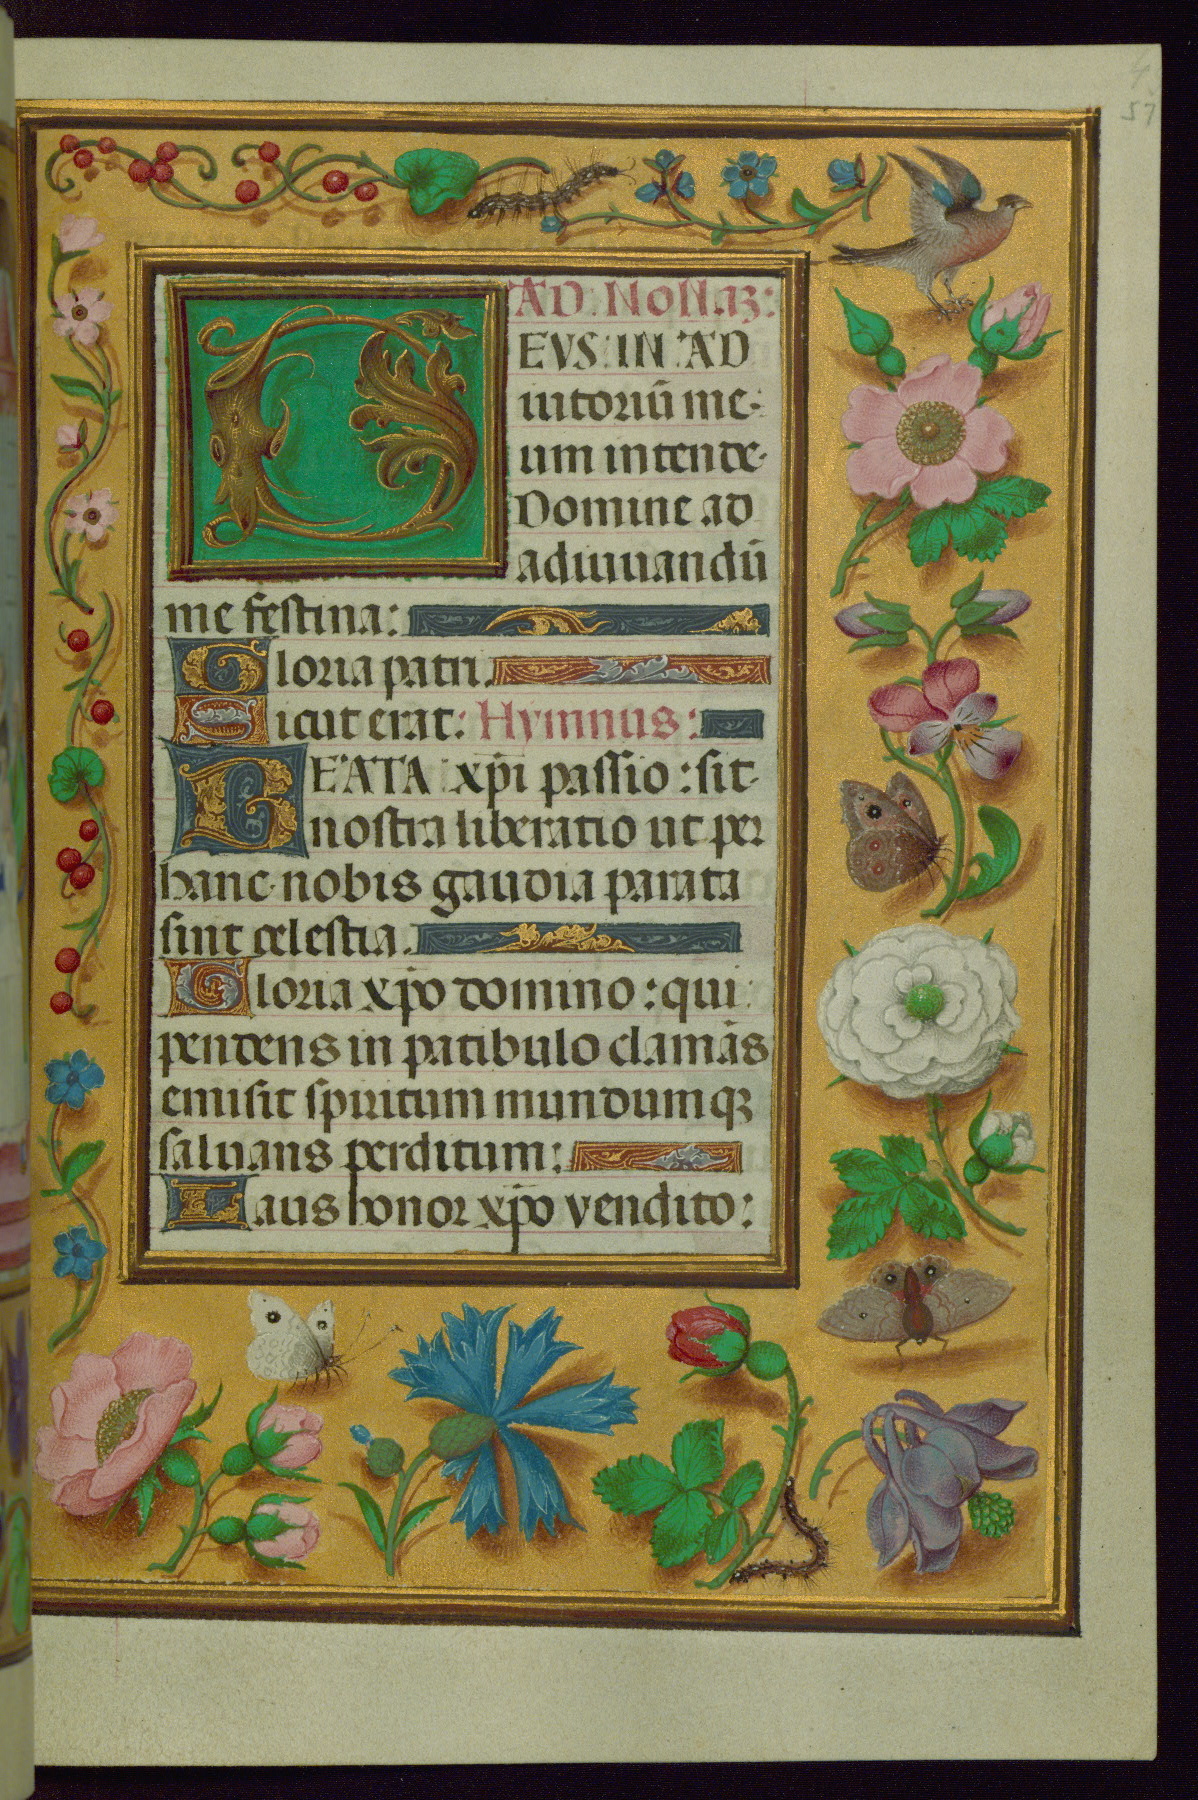 57
AD NONAʒ:
DEUS: IN AD
iutoriū me-
um intende·
Domine ad
adiuuandū
me festina:
Gloria patri.
Sicut erat: Hymnus:
BEATA xp̄i passio: sit
nostra liberatio ut per
hanc nobis gaudia parata
sint celestia.
Gloria xp̄o domino: qui
pendens in patibulo clamās
emisit spiritum mundumqꝫ
saluans perditum:
Laus honor xp̄o vendito: